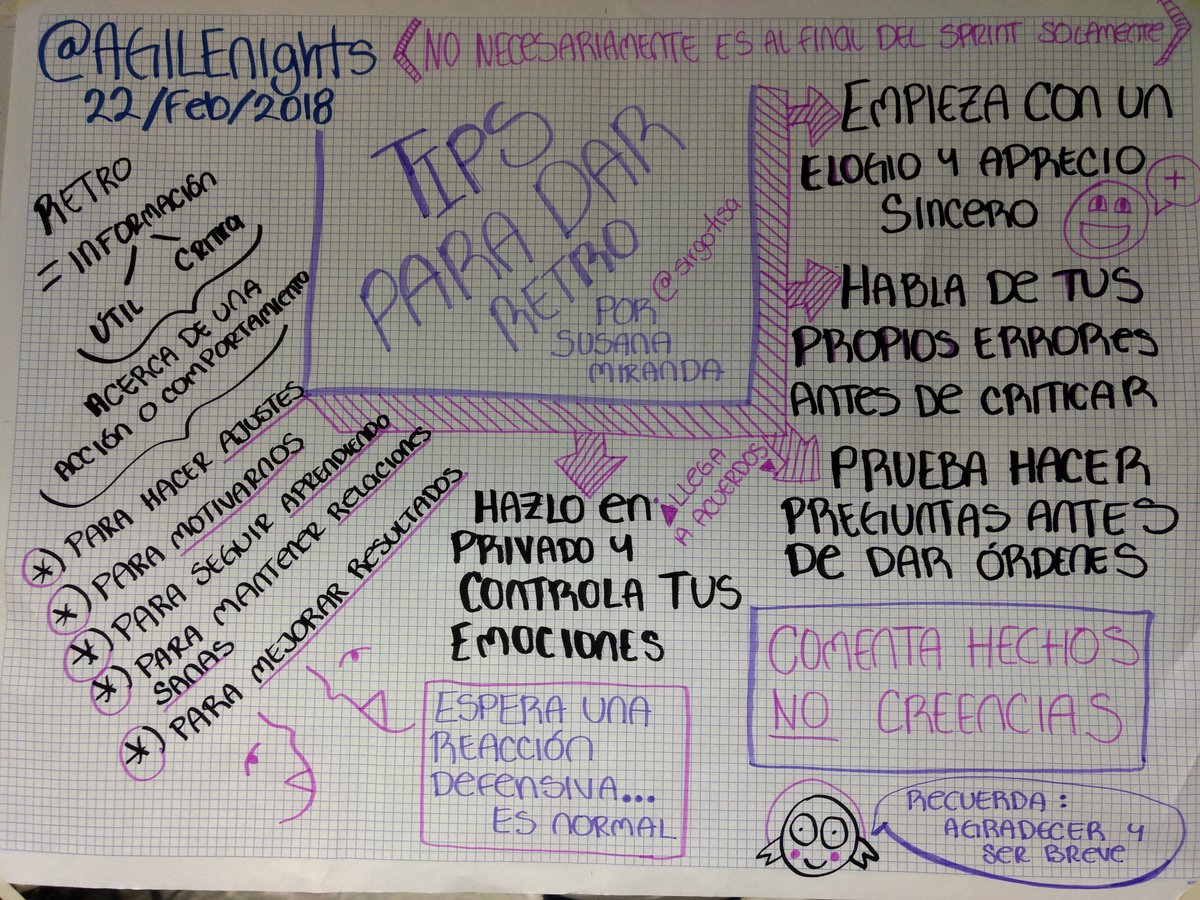 @AGILEnights
22/Feb/2018
<NO NECESARIAMENTE ES AL FINAL DEL SPRINT SOLAMENTE>
TIPS
PARA DAR
RETRO
POR
SUSANA
MIRANDA
RETRO
= INFORMACIÓN
ÚTIL
CRITICA
ACERCA DE UNA
ACCIÓN O COMPORTAMIENTO
*) PARA HACER AJUSTES
*) PARA MOTIVARNOS
*) PARA SEGUIR APRENDIENDO
*) PARA MANTENER RELACIONES
SANAS
*) PARA MEJORAR RESULTADOS
EMPIEZA CON UN
ELOGIO Y APRECIO
SINCERO
+
HABLA DE TUS
PROPIOS ERRORES
ANTES DE CRITICAR
PRUEBA HACER
PREGUNTAS ANTES
DE DAR ÓRDENES
LLEGA
A ACUERDOS
HAZLO EN
PRIVADO Y
CONTROLA TUS
EMOCIONES
COMENTA HECHOS
NO CREENCIAS
ESPERA UNA
REACCIÓN
DEFENSIVA...
ES NORMAL
RECUERDA:
AGRADECER Y
SER BREVE